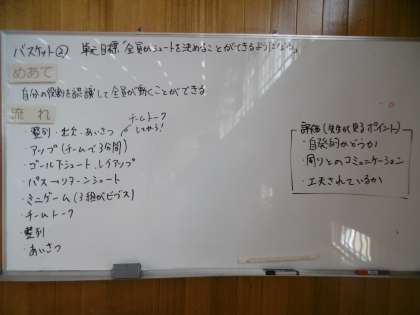 バスケット② 単元目標「全員がシュートを決めることができるようになる。
めあて
自分の役割を認識して全員が動くことができる
流れ
チームトーク
しても可!
・整列・出欠・あいさつ
・アップ(チームで3分間)
・ゴール下シュート、レイアップ
・パス→リターンシュート
・ミニゲーム(3組がビブス)
・チームトーク
・整列
・あいさつ
評価(先生が見るポイント)
・自発的かどうか
・周りとのコミュニケーション
・工夫されているか